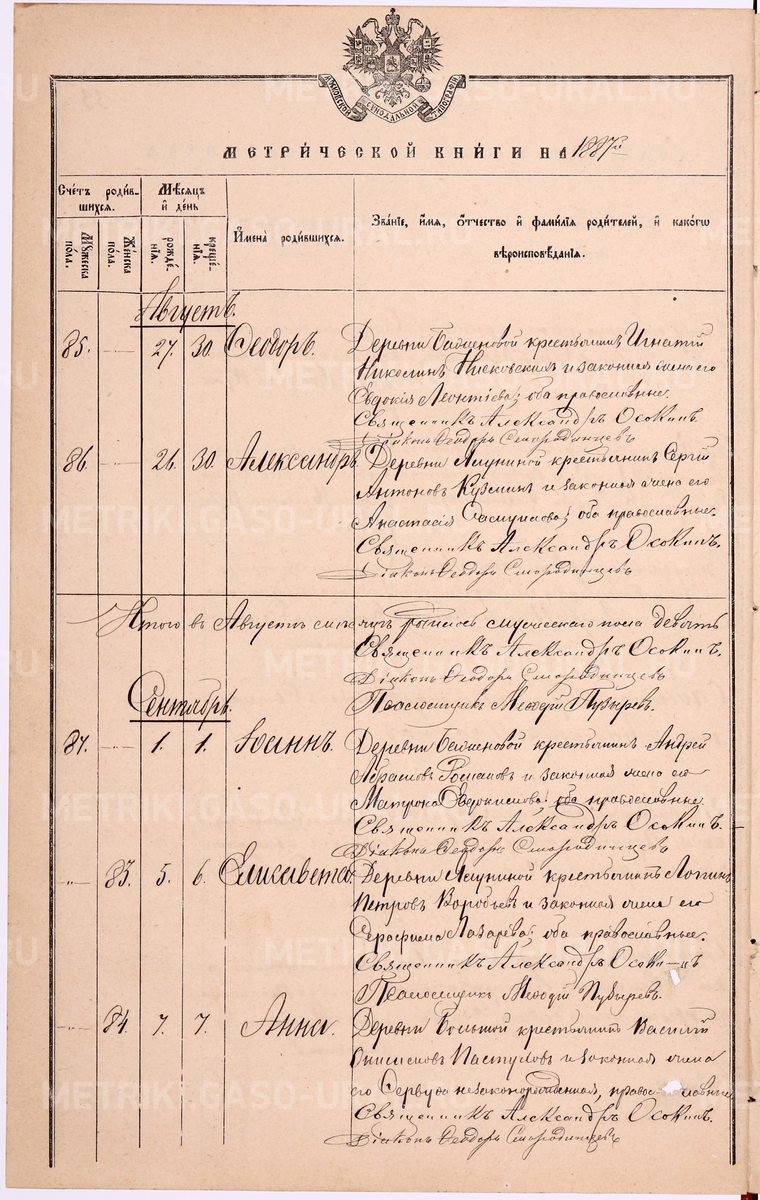 МОСКОВСКОЙ СИНОДАЛЬНОЙ ТИПОГРАФІИ
МЕТРИ́ЧЕСКОЙ КНИ́ГИ НА 1887й
Сче́тъ роди́в-
шихся.
Мѣ́сяцъ
и҆ де́нь
И҆мена̀ роди́вшихся.
Зва́нїе, и҆́мѧ, ѻ҆́тчество и҆ фами́лїѧ роди́телей, и҆ како́гѡ
вѣроисповѣ́данїѧ.
Мꙋ́жеска
по́ла.
Же́нска
по́ла.
рожде́-
нїѧ.
креще́-
нїѧ.
Августъ.
85. — 27. 30. Ѳеодоръ. Деревни Баженовой крестьянинъ Игнатій
и законная жена его
Евдокія Леонтіева; оба православные.
Священникъ Александръ Осокинъ.
Діаконъ Ѳеодоръ Смородинцевъ
86. — 26. 30. Александръ. Деревни крестьянинъ Сергій
Антоновъ Кузминъ и законная жена его
Анастасія оба православные.
Священникъ Александръ Осокинъ.
Діаконъ Ѳеодоръ Смородинцевъ
Итого въ Августѣ мѣсяцѣ мужескаго пола девять
Священникъ Александръ Осокинъ.
Діаконъ Ѳеодоръ Смородинцевъ
Псаломщикъ Меѳодій Пузыревъ.
Сентябрь.
87. — 1. 1. Іоаннъ. Деревни Баженовой крестьянинъ Андрей
Абрамовъ Романовъ и законная жена его
Матрона Евдокимова; оба православные.
Священникъ Александръ Осокинъ.
Діаконъ Ѳеодоръ Смородинцевъ
„ 83. 5. 6. Елисавета. Деревни крестьянинъ Логинъ
Петровъ Воробьевъ и законная жена его
Серафима Лазарева; оба православные.
Священникъ Александръ Осокинъ
Псаломщикъ Меѳодій Пузыревъ.
— 84. 7. 7. Анна. Деревни Большой крестьянинъ Василій
Онисимовъ Пастуховъ и законная жена
его православные
Священникъ Александръ Осокинъ.
Діаконъ Ѳеодоръ Смородинцевъ